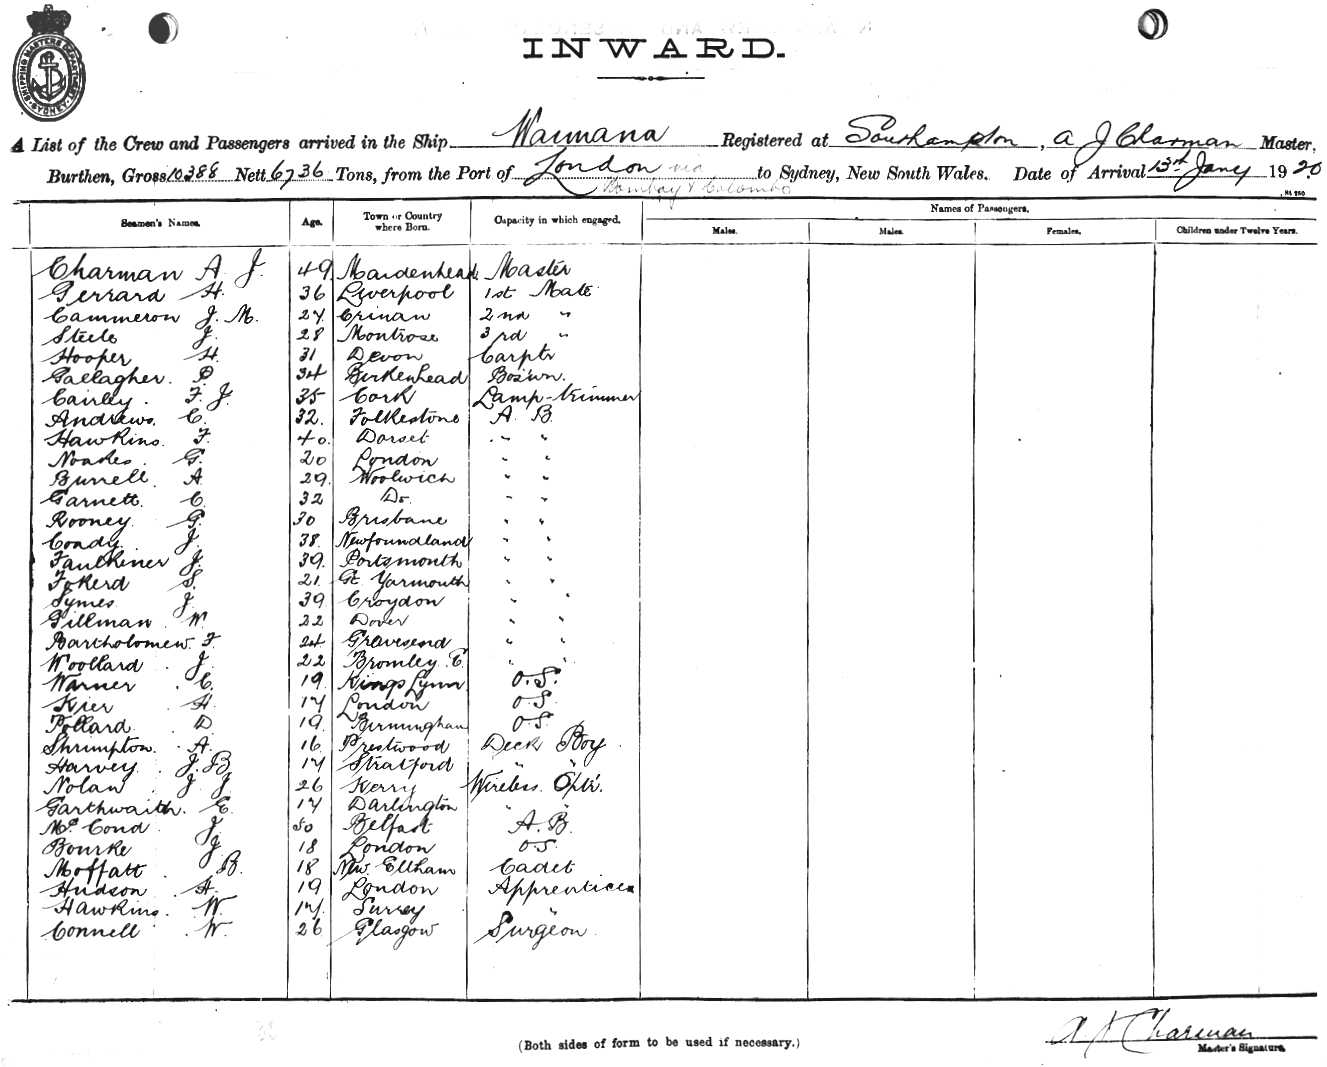 SHIPPING MASTERS DEPARTMENT SYDNEY
INWARD.
A List of the Crew and Passengers arrived in the Ship Waimana Registered at Southampton, A J Charman Master,
Burthen, Gross 10388 Nett 6736 Tons, from the Port of London via to Sydney, New South Wales. Date of Arrival 13th Jany 1920
Bombay & Colombo
Seamen's Names. Age. Town or Country where Born. Capacity in which engaged. Names of Passengers.
Males. Males. Females. Children under Twelve Years.
Charman A J. 49 Maidenhead Master
Gerrard H. 36 Liverpool 1st Mate
Cammeron J. M. 27 Crinan 2nd "
Steele J. 28 Montrose 3rd "
Hooper H. 31 Devon Carptr
Gallagher. P 34 Birkenhead Bos'wn.
Cairley. F. J. 35 Cork Lamp-trimmer
Andrews. C. 32. Folkestone A. B.
Hawkins. F. 40. Dorset " "
Noakes. G. 20 London " "
Burrell A. 29. Woolwich " "
Garnett C. 32 Do. " "
Rooney. G. 30 Brisbane " "
Coady. J. 38. Newfoundland " "
Faulkiner J. 39. Portsmouth " "
Fokerd S. 21. Gt Yarmouth " "
Symes J. 39 Croydon " "
Gillman. W. 22 Dover " "
Bartholomew. F. 24 Gravesend " "
Woollard. J. 22 Bromley. E. " "
Warner. C. 19. Kings Lynn O. S.
Kier H. 17 London O S.
Pollard. D 19. Birmingham O S.
Shrimpton. A. 16. Prestwood Deck Boy.
Harvey. J. B. 17 Stratford " "
Nolan. J J. 26 Kerry Wireless. Optr.
Garthwaith. E. 17 Darlington " "
Mc Cond. J. 50 Belfast A. B.
Bourke J 18 London O S.
Moffatt. B. 18 New Eltham Cadet
Hudson. H. 19 London Apprentice
Hawkins. W. 17. Surrey "
Connell. W. 26 Glasgow Surgeon.
A J Charman
(Both sides of form to be used if necessary.) Master's Signature.